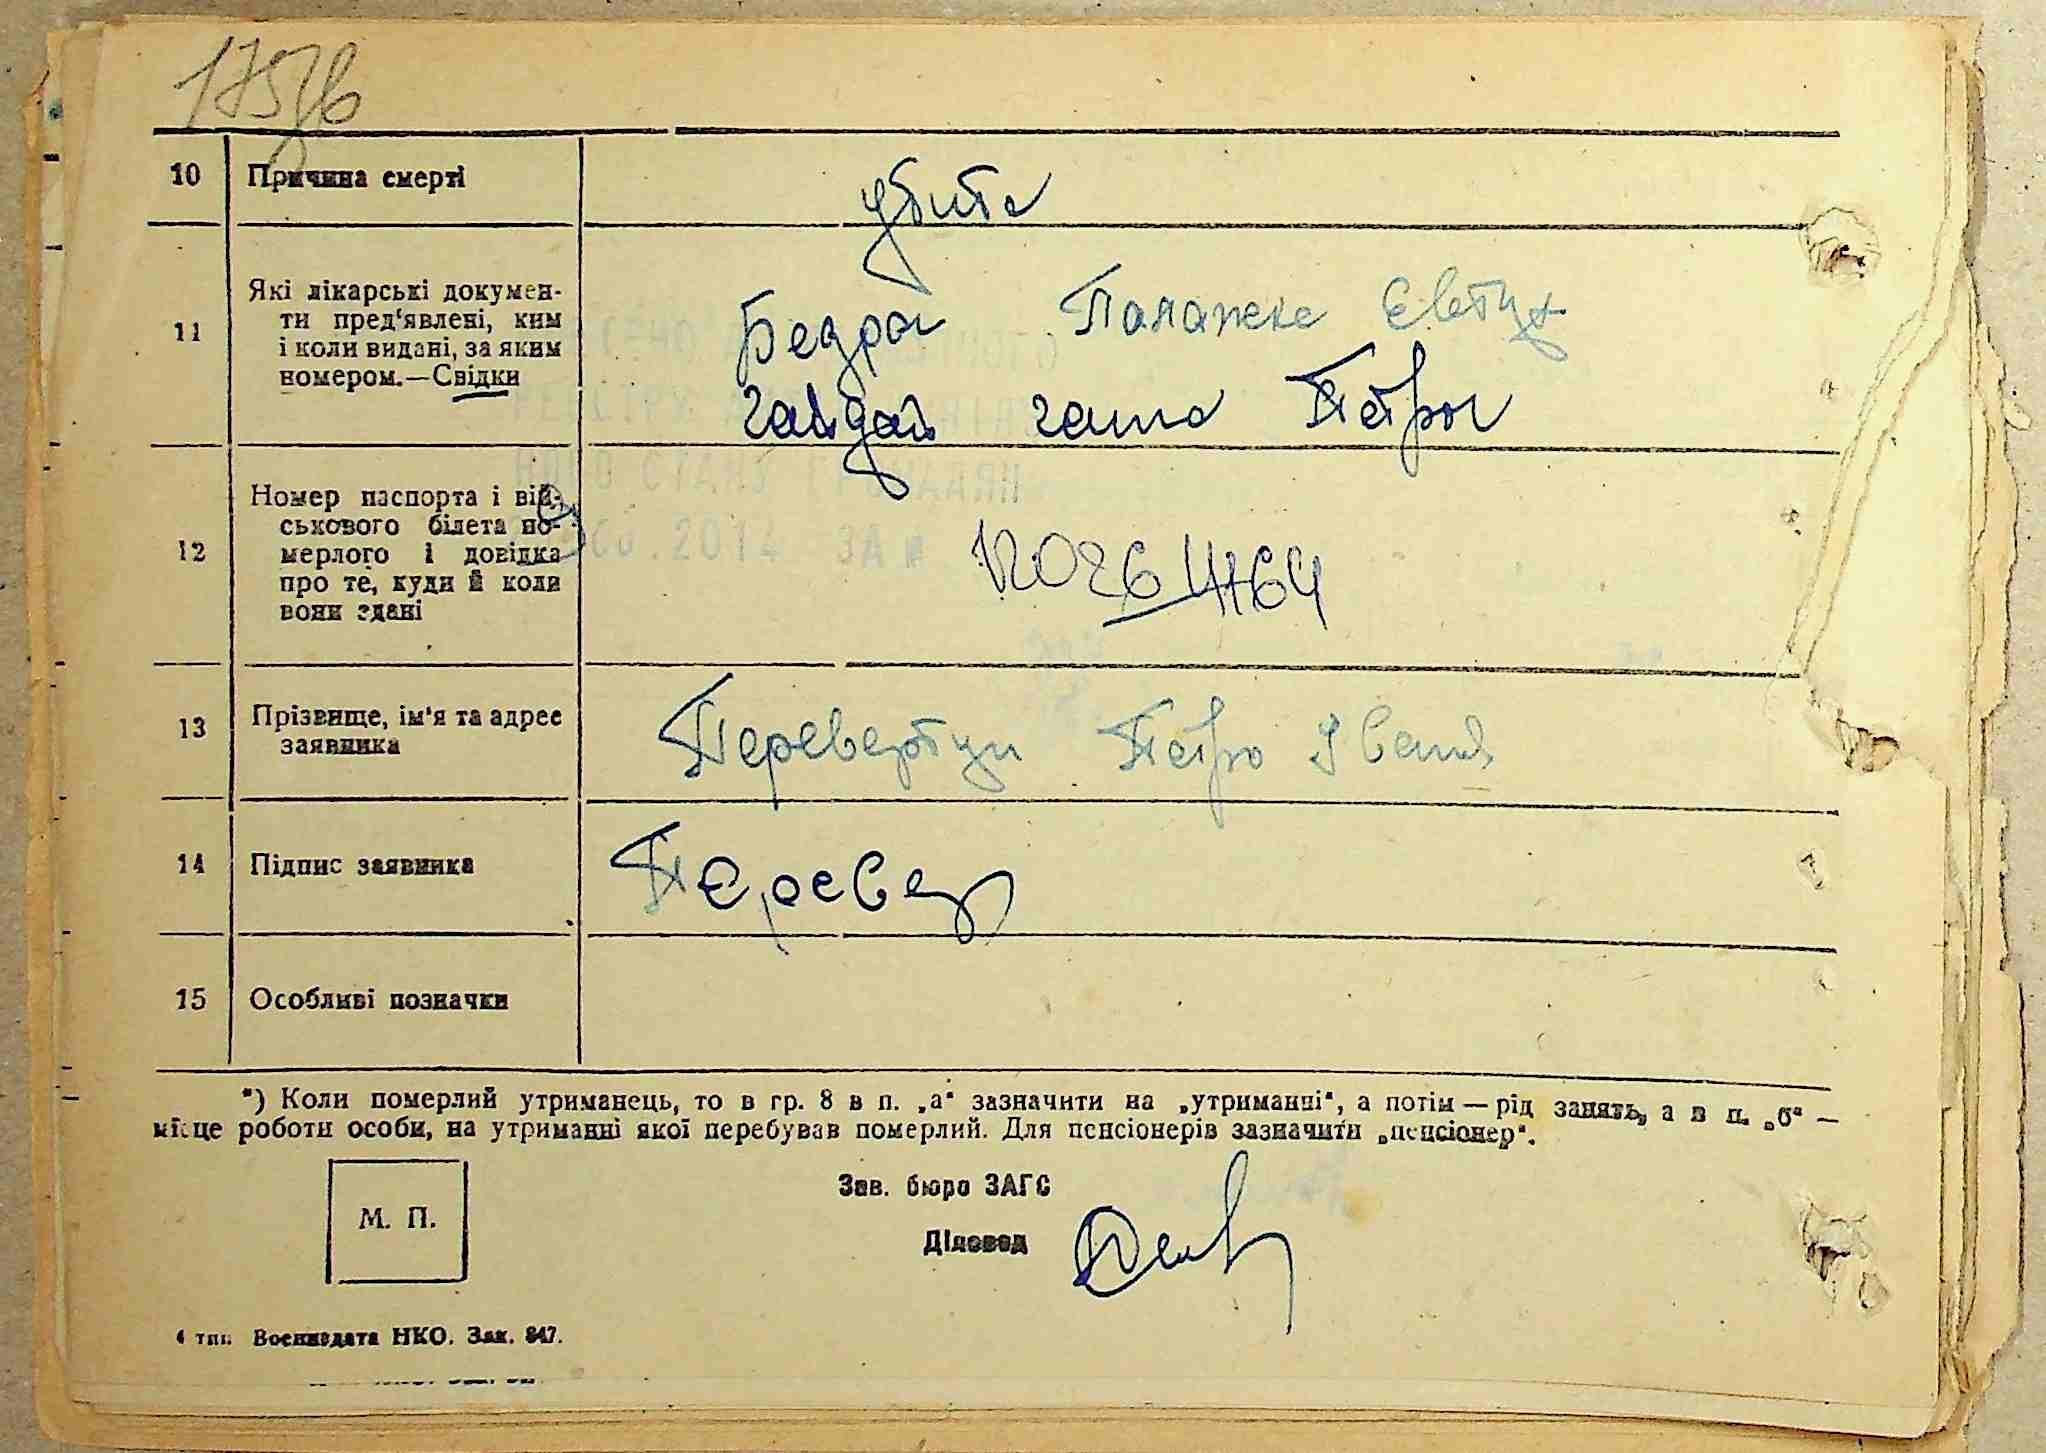 10 Причина смерті убита
11 Які лікарські докумен-
ти пред'явлені, ким
і коли видані, за яким
номером.—Свідки
Бедра Палажке Євтух
Гайдай Ганна Петро
12 Номер паспорта і вій-
ськового білета по-
мерлого і довідка
про те, куди й коли
вони здані
13 Прізвище, ім'я та адрес
заявника
Перевертун Петро Іван
14 Підпис заявника Перевер
15 Особливі позначки
*) Коли померлий утриманець, то в гр. 8 в п. „а" зазначити на „утриманні", а потім — рід занять, а в п. „б" —
місце роботи особи, на утриманні якої перебував померлий. Для пенсіонерів зазначити „пенсіонер".
М. П.
Зав. бюро ЗАГС
Діловод
4 тип. Воениздата НКО. Зак. 847.